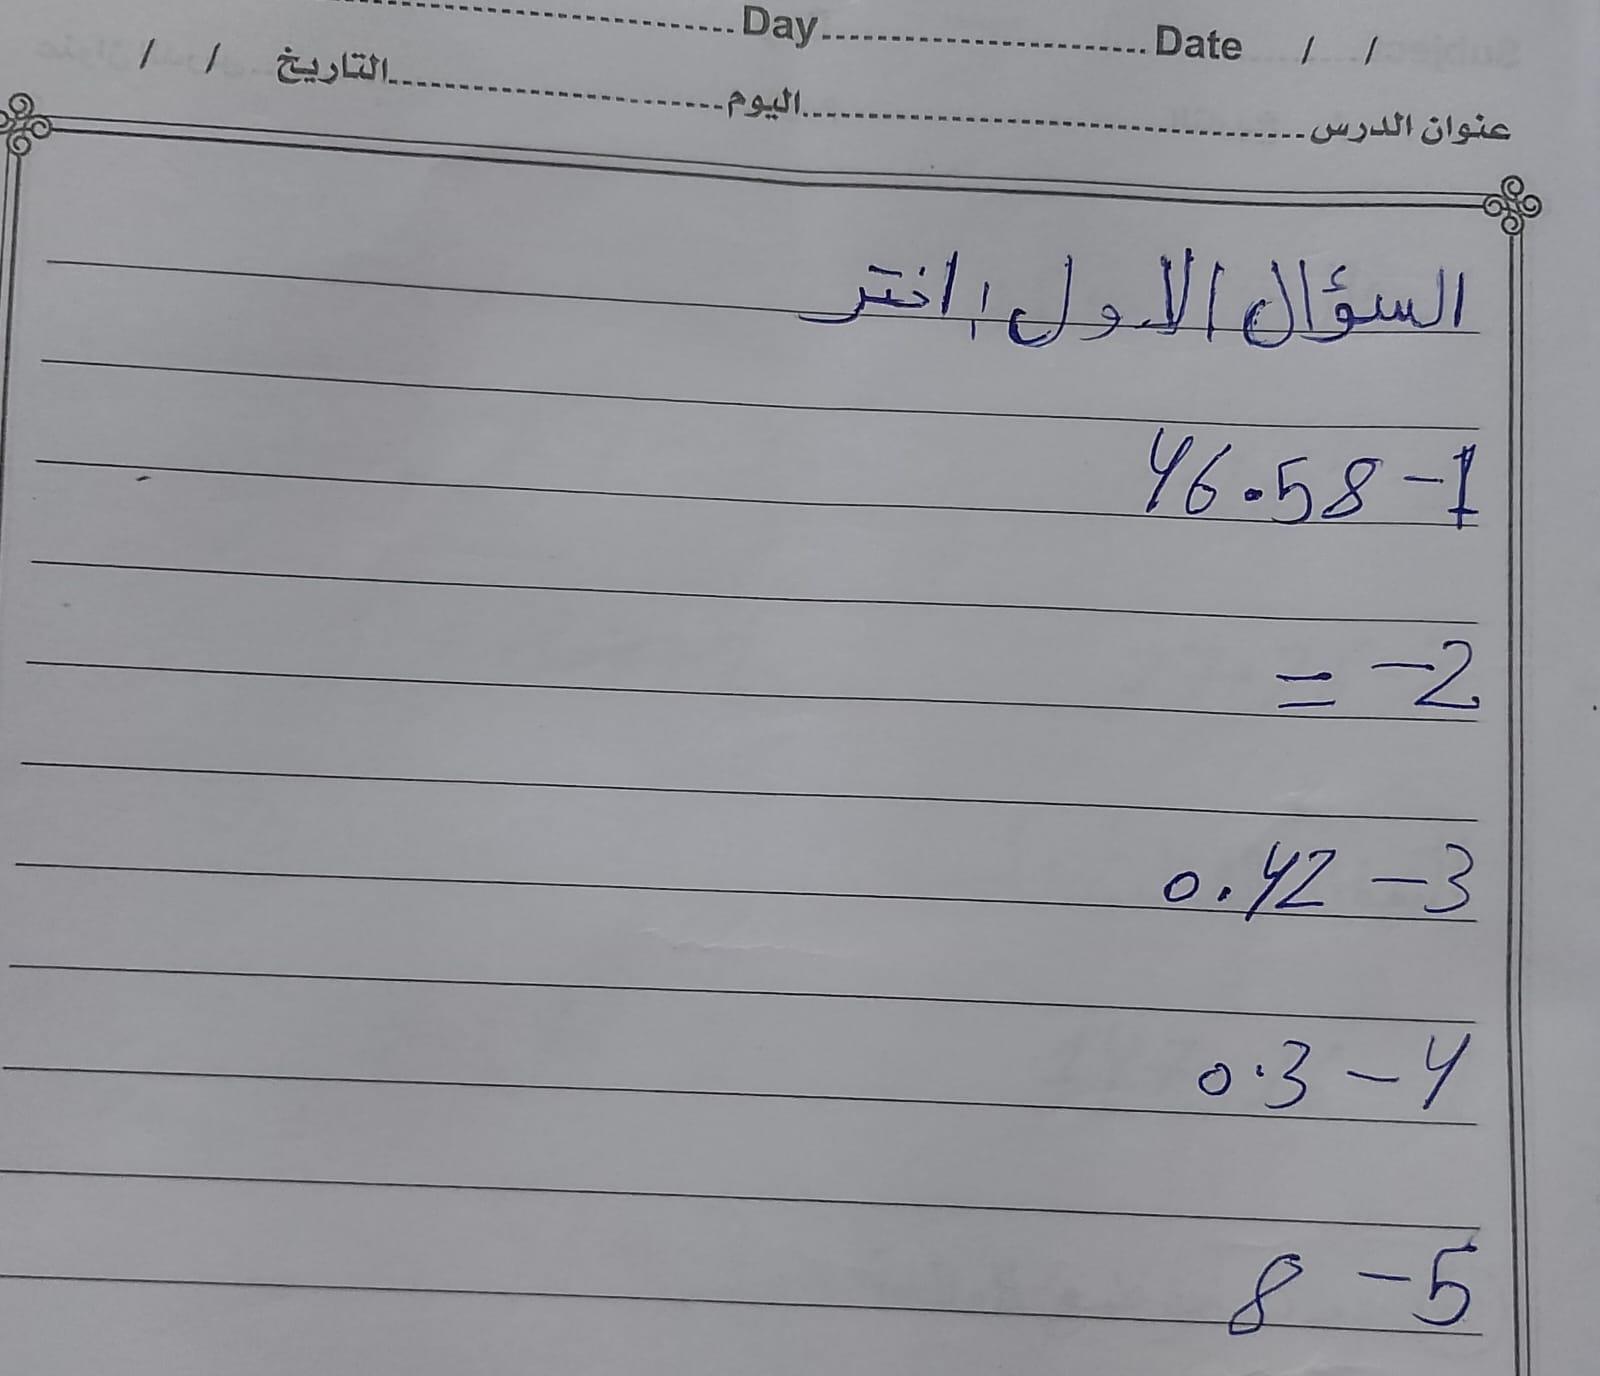 Day Date / /
عنوان الدرس اليوم التاريخ / /
السؤال الاول / اختر
1- 46.58
2- =
3- 0.42
4- 0.3
5- 8